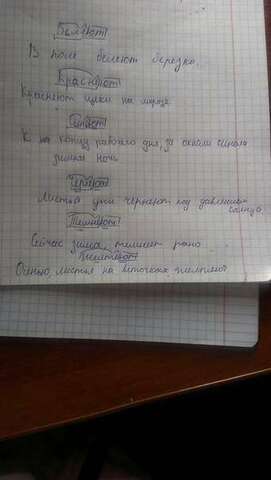 Белеют
В поле белеют березки.
Краснеют
Краснеют щеки на морозе
Синеет
К концу рабочего дня, за окном синела
зимняя ночь
Чернеют
Листья чернеют под давлением
солнца.
Темнеют
Сейчас зима, темнеет рано.
Желтеют
Осенью, листья на веточках желтеют